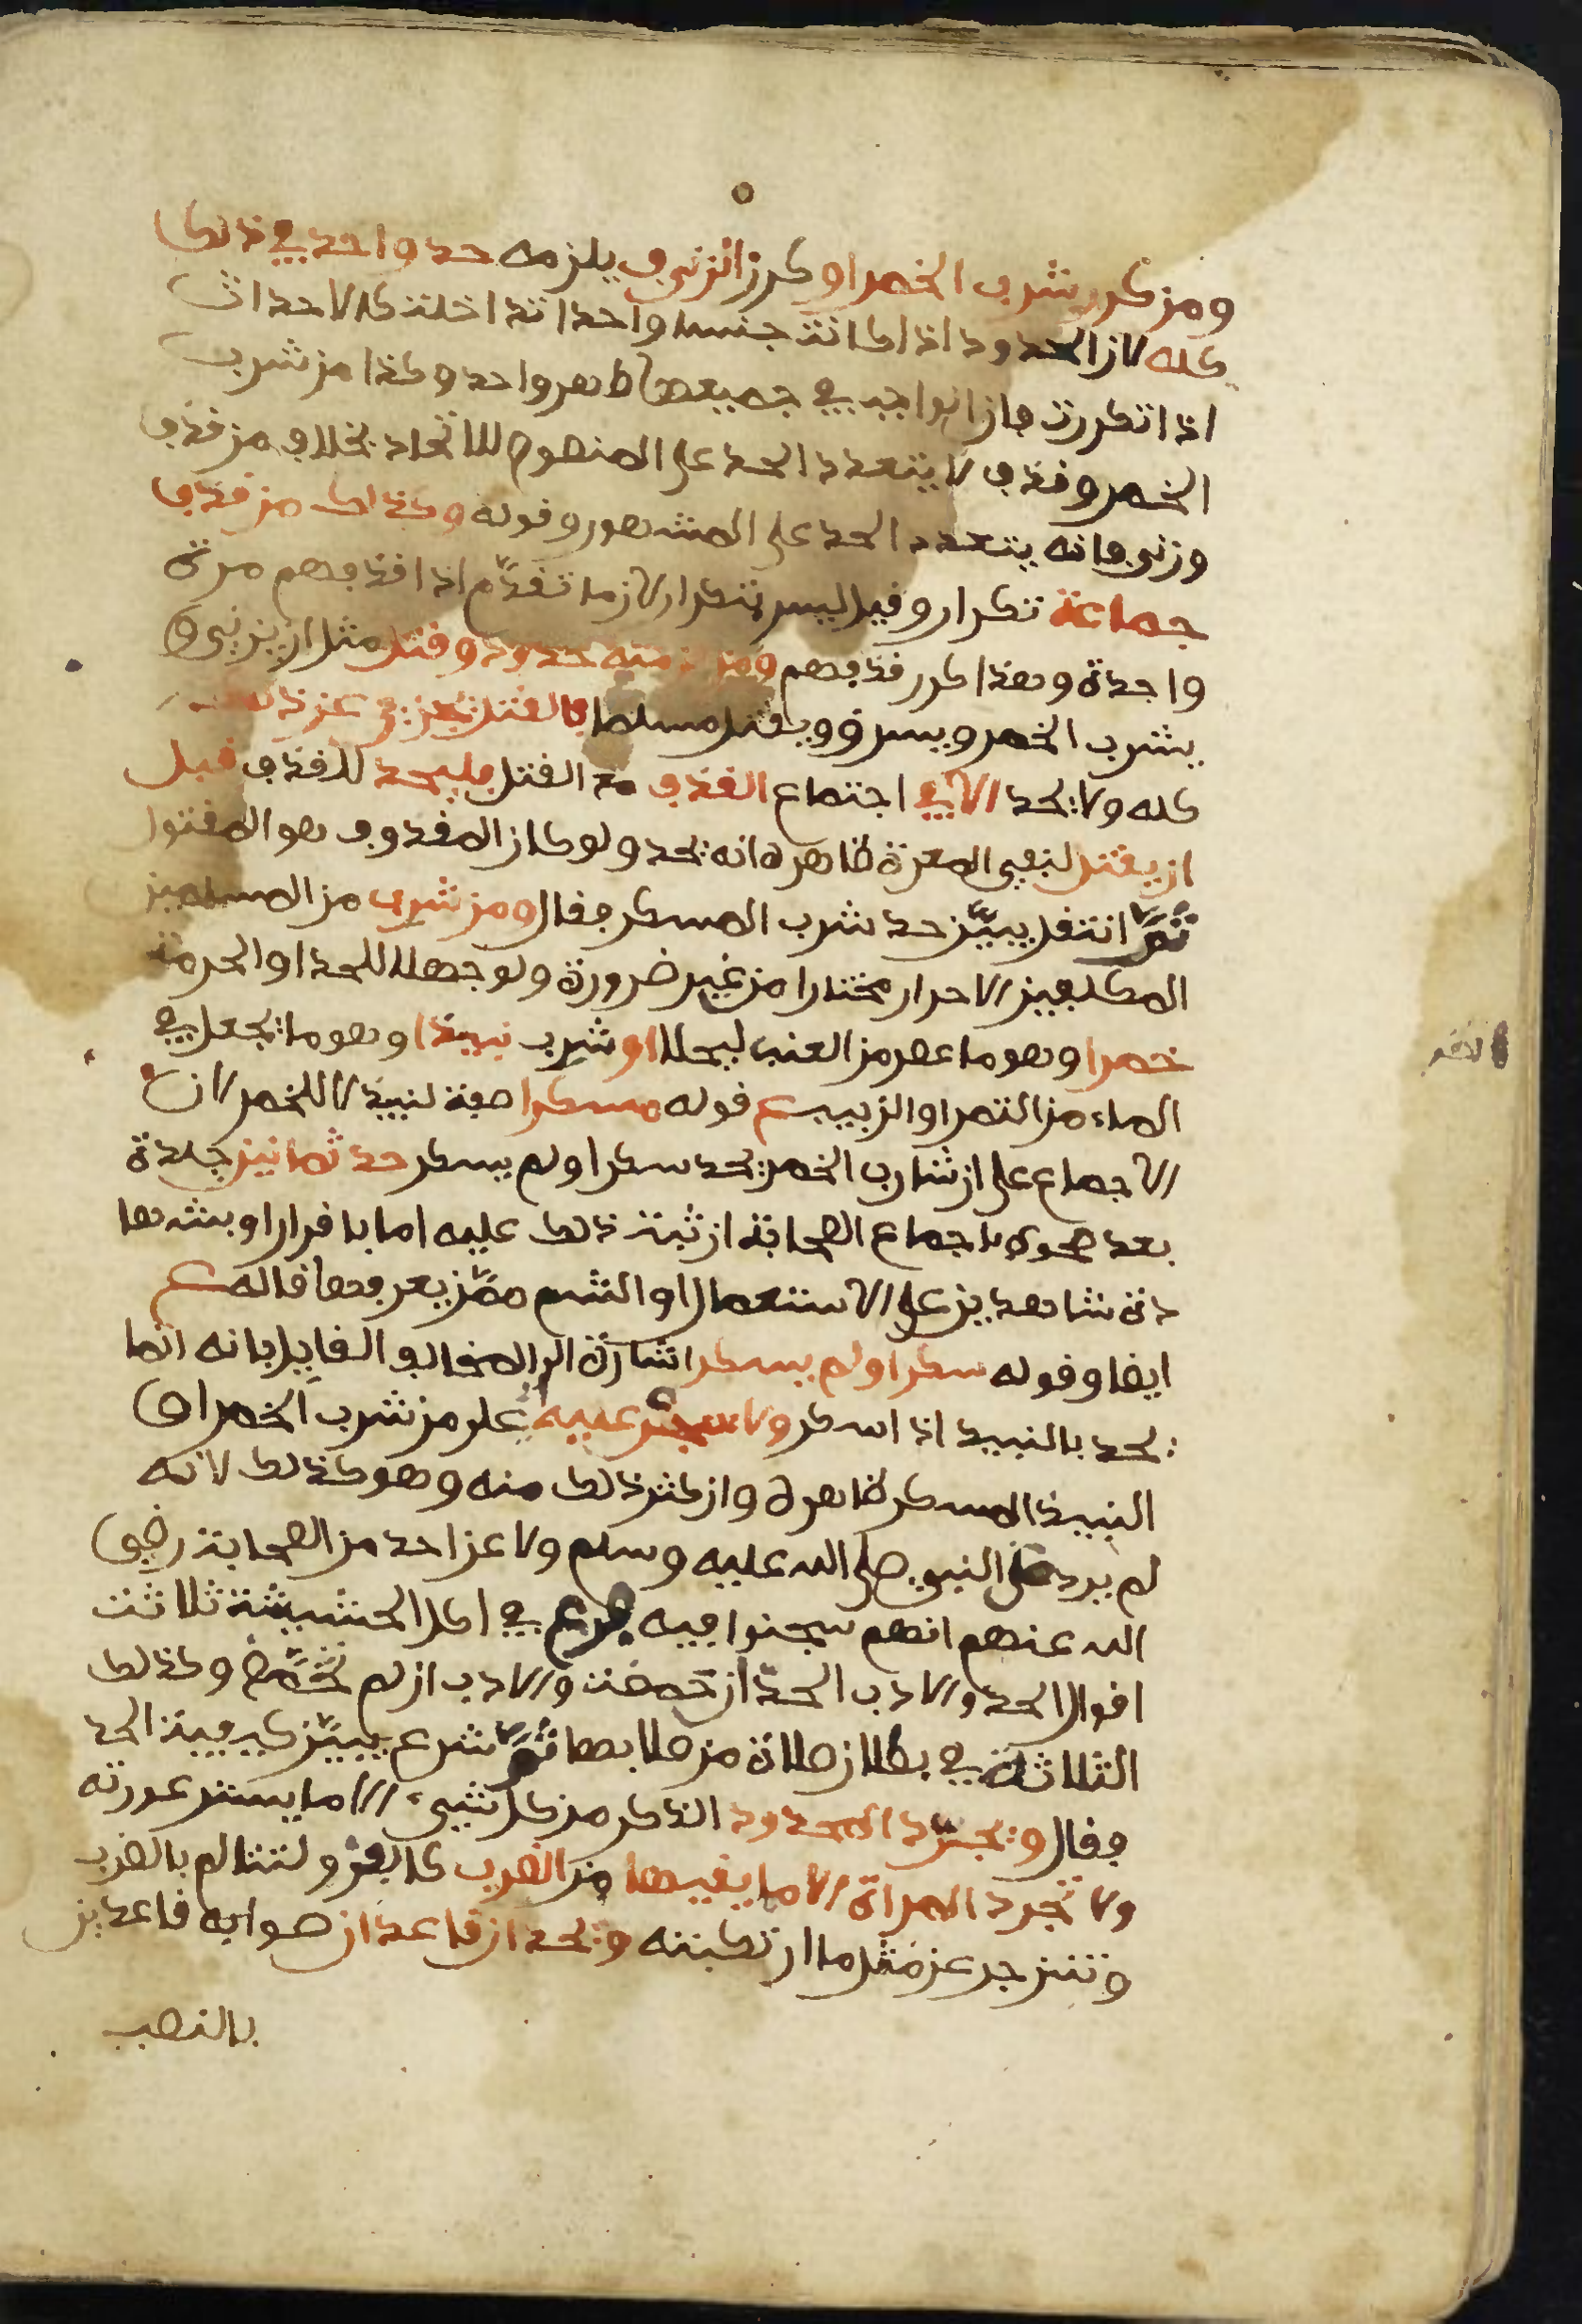 ومن كرر شرب الخمر او كرر الزنى يلزمه حد واحد في ذلك
كله لان الحدود اذا كانت جنسا واحدا تداخلت كالاحداث
اذا تكررت فان الواجب في جميعها طهر واحد وكذا من شرب
الخمر وقذف لا يتعدد الحد على المنصوص للاتحاد بخلاف من قذف
وزنى فانه يتعدد الحد على المشهور وقوله وكذلك من قذف
جماعة تكرار وقيل ليس بتكرار لان ما تقدّم اذا قذفهم مرة
واحدة وهذا كرر قذفهم ومن لزمته حدود وقتل مثل ان يزني و
يشرب الخمر ويسرق ويقتل مسلما فالقتل يجزي عن ذلك
كله ولا يحد الا في اجتماع القذف مع القتل فليحد للقذف قبل
ان يقتل لنفي المعرة ظاهره انه يحد ولو كان المقذوف هو المقتول
ثمّ انتقل يبيّن حد شرب المسكر فقال ومن شرب من المسلمين
المكلفين الاحرار مختارا من غير ضرورة ولو جهلا للحد او الحرمة
خمرا وهو ما عصر من العنب ليحلل او شرب نبيذا وهو ما يجعل في
الماء من التمر او الزبيب ع قوله مسكرا صفة لنبيذ لا للخمر لان
الاجماع على ان شارب الخمر يحد سكر او لم يسكر حد ثمانين جلدة
بعد صحوه باجماع الصحابة ان ثبت ذلك عليه اما باقرار او بشها
دة شاهدين على الاستعمال او الشم ممّن يعرفها قاله ع
ايضا وقوله سكر او لم يسكر اشارة الى المخالف القايل بانه انما
يحد بالنبيذ اذا اسكر ولا سجن عليه على من شرب الخمر او
النبيذ المسكر ظاهره وان كثر ذلك منه وهو كذلك لانه
لم يرد عن النبي صلى الله عليه وسلم ولا عن احد من الصحابة رضي
الله عنهم انهم سجنوا فيه فرع في اكل الحشيشة ثلاثة
اقوال الحد والادب الحدّ ان حمصت والادب ان لم تحمّص وكذلك
الثلاثة في بطلان صلاة من صلا بها ثمّ شرع يبيّن كيفية الحد
فقال ويجرّد المحدود الذكر من كل شيء الا ما يستر عورته
ولا تجرد المراة الا مما يقيها من الضرب كالفرو لتتالم بالضرب
وتنزجر عن مثل ما ارتكبته ويحد ان قاعدان صوابه قاعدين
بالنصب